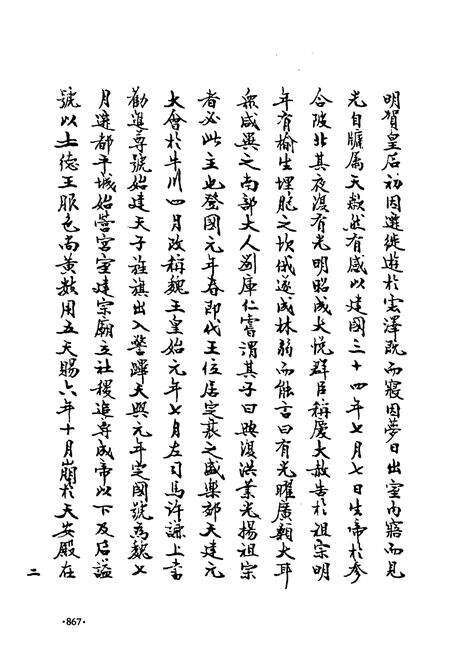 明賀皇后初因遷徙遊於雲澤既而寢因夢日出室內寤而見
光自牖屬天歘然有感以建國三十四年七月七日生帝於參
合陂北其夜復有光明昭成大悅羣臣稱慶大赦告於祖宗明
年有榆生埋胞之坎俄遂成林弱而能言目有光曜廣顙大耳
衆咸異之南部大人劉庫仁嘗謂其子曰興復洪業光揚祖宗
者必此主也登國元年春即代王位居定襄之盛樂郊天建元
大會於牛川四月改稱魏王皇始元年七月左司馬許謙上書
勸進尊號始建天子旌旗出入警蹕天興元年定國號為魏七
月遷都平城始營宮室建宗廟立社稷追尊成帝以下及后諡
號以土德王服色尚黃數用五天賜六年十月崩於天安殿在
二
·867·